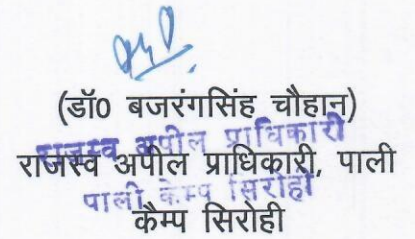 (डॉ0 बजरंगसिंह चौहान)
राजस्व अपील प्राधिकारी
राजस्व अपील प्राधिकारी, पाली
पाली केम्प सिरोही
कैम्प सिरोही